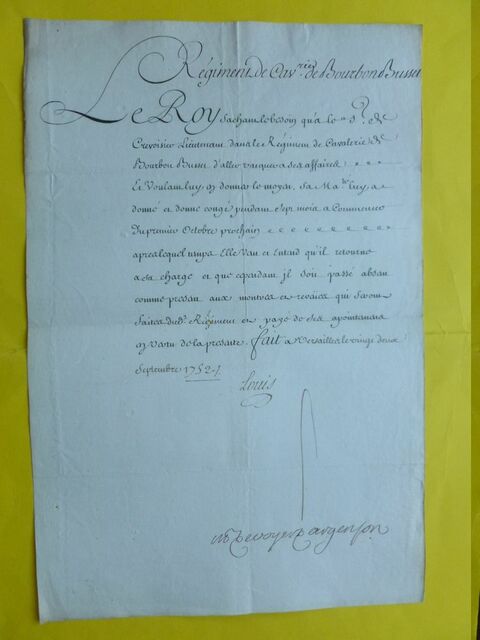 Régiment de Cav.rie de Bourbon Busset
Le Roy Sachant le besoin qu'a le S.r de
Crevoisier Lieutenant dans le Régiment de Cavalerie de
Bourbon Busset d'aller vacquer a ses affaires
Et Voulant luy en donner le moyen, Sa Ma.té luy a
donné et donne congé pendant sept mois a Commencer
Du premier Octobre prochain
apres lequel temps Elle Veut et Entend qu'il retourne
a sa charge et que cependant il soit passé absent
comme present aux montres et reveües qui seront
faites dud.t Régiment et payé de ses apointemens
en Vertu de la presente. fait a Versailles le vingt deux
Septembre 1752./.
Louis
M. De voyer D'argenson